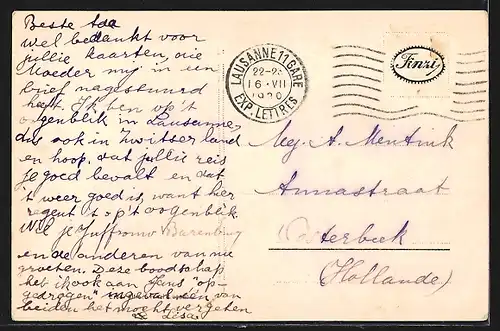 Beste
wel bedankt voor
jullie kaarten, die
Moeder mij in een
brief nagestuurd
heeft. Ik ben op 't
oogenblik in Lausanne,
dus ook in Zwitserland
en hoop, dat jullie reis
je goed bevalt en dat
't weer goed is, want hier
regent 't op 't oogenblik.
Wil je Juffrouw
en de anderen van me
groeten. Deze boodschap
heb ik ook aan "op-
gedragen" ingeval één van
beiden het mocht vergeten
LAUSANNE 11 GARE
16·VII
EXP. LETTRES
Finzi
Mej. A. Mentink
Annastraat
Oosterbeek
(Hollande)